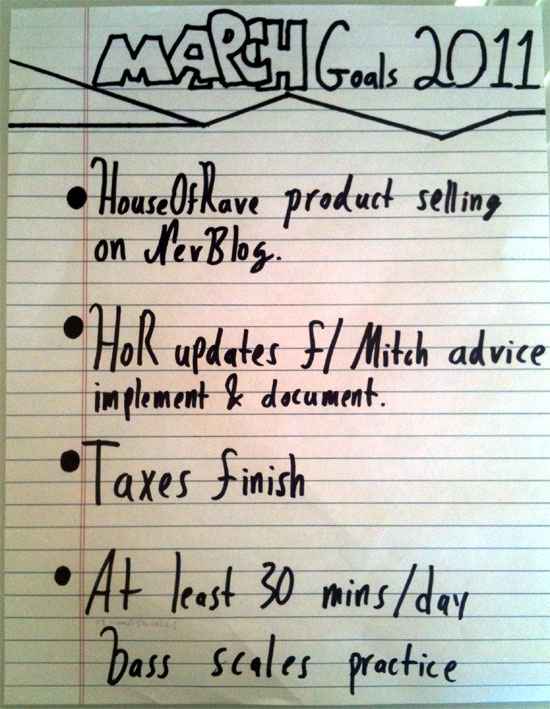 MARCH Goals 2011
HouseOfRave product selling
on NevBlog.
HoR updates f/ Mitch advice
implement & document.
Taxes finish
At least 30 mins/day
bass scales practice